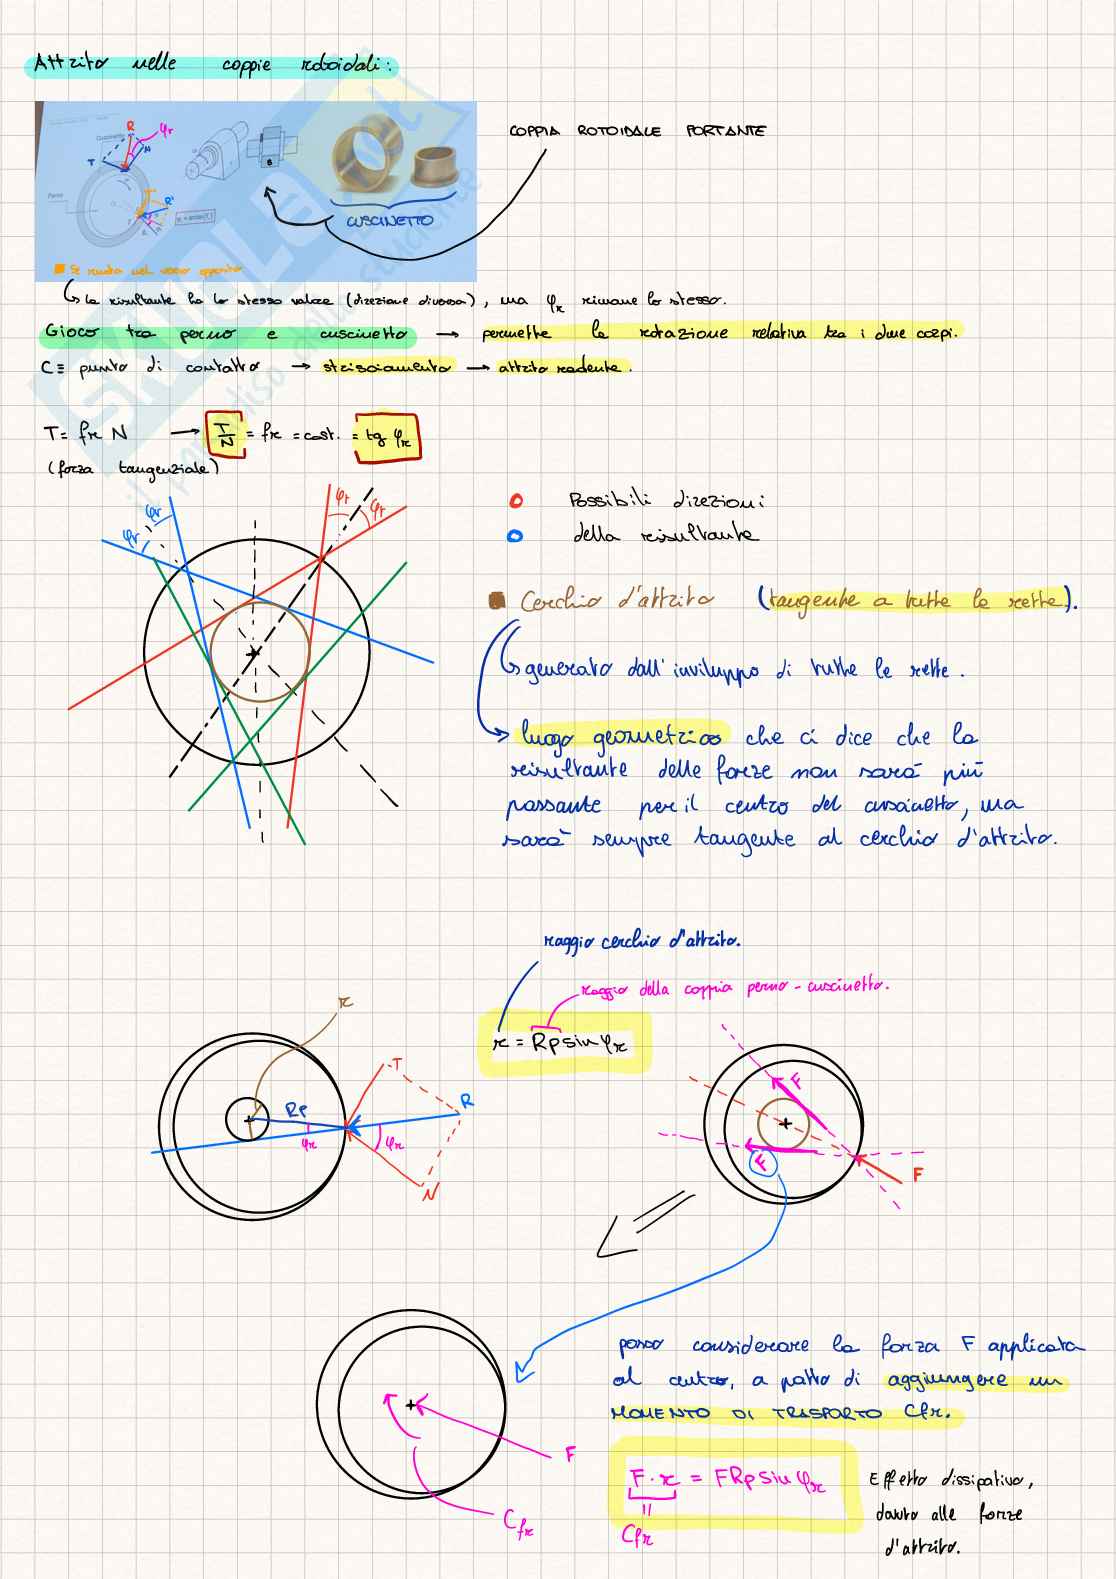 Attrito nelle coppie rotoidali:
COPPIA ROTOIDALE PORTANTE
R
φr
T
N
Perno
R'
CUSCINETTO
Se ruota nel verso opposto
la risultante ha lo stesso valore (direzione diversa), ma φr rimane lo stesso.
Gioco tra perno e cuscinetto → permette la rotazione relativa tra i due corpi.
C≡ punto di contatto → strisciamento → attrito radente.
T = fr N → T/N = fr = cost. = tg φr
(forza tangenziale)
φr φr φr φr
Possibili direzioni
della risultante
Cerchio d'attrito (tangente a tutte le rette).
generato dall'inviluppo di tutte le rette.
luogo geometrico che ci dice che la
risultante delle forze non sarà più
passante per il centro del cuscinetto, ma
sarà sempre tangente al cerchio d'attrito.
raggio cerchio d'attrito.
raggio della coppia perno - cuscinetto.
r = Rp sin φr
r
T
R
Rp
φr φr
N
F
F
F
posso considerare la forza F applicata
al centro, a patto di aggiungere un
MOMENTO DI TRASPORTO Cfr.
F
Cfr
F · r = F Rp sin φr
=
Cfr
Effetto dissipativo,
dovuto alle forze
d'attrito.